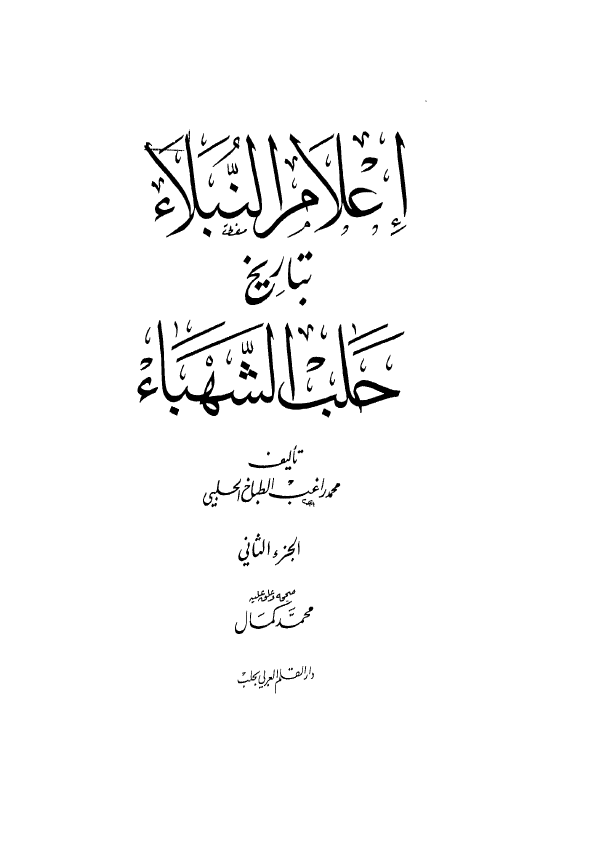 إعلام النبلاء
بتاريخ
حلب الشهباء
تأليف
محمد راغب الطباخ الحلبي
الجزء الثاني
صححه وعلق عليه
محمد كمال
دار القلم العربي بحلب